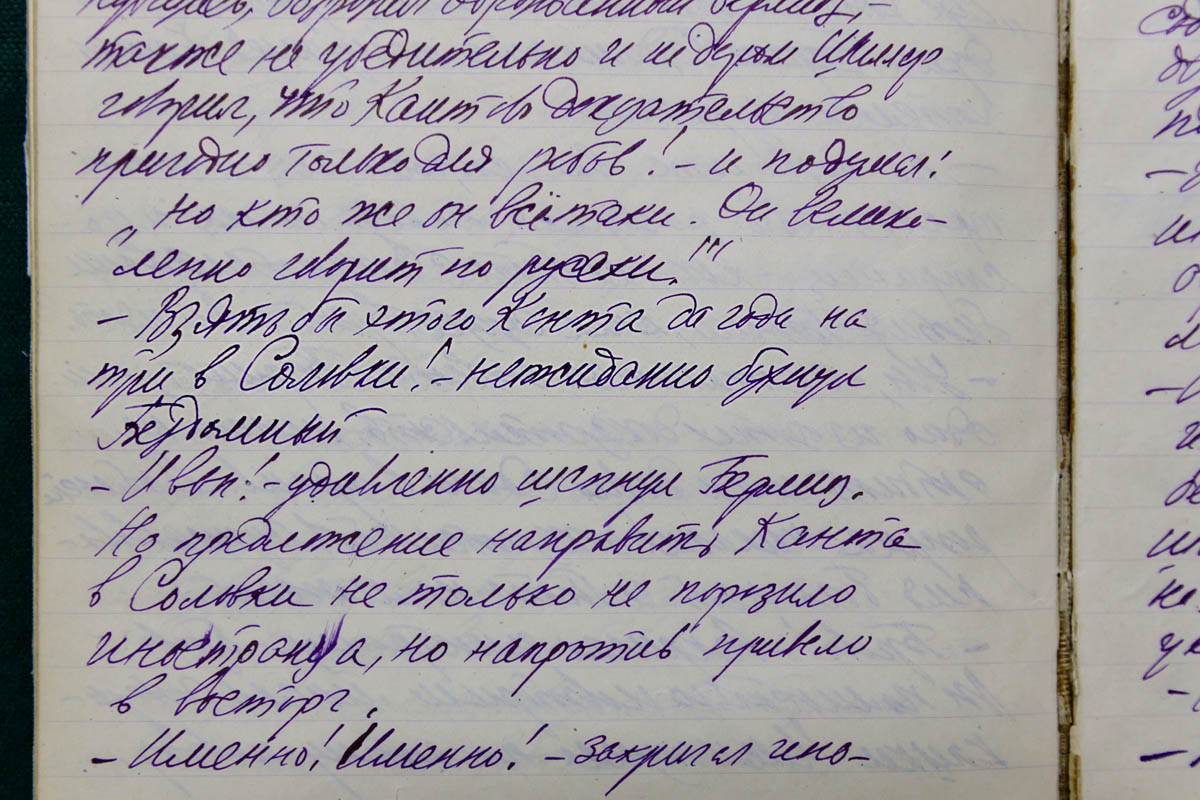 возразил образованный Берлиоз, –
также не убедительно и недаром Шиллер
говорил, что Кантово доказательство
пригодно только для рабов! – и подумал:
„Но кто же он всётаки. Он велико-
лепно говорит по русски!"
– Взять бы этого Канта да года на
три в Соловки! – неожиданно бухнул
Бездомный
– Иван! – удавленно шепнул Берлиоз.
Но предложение направить Канта
в Соловки не только не поразило
иностранца, но напротив привело
в восторг.
– Именно! Именно! – закричал ино-